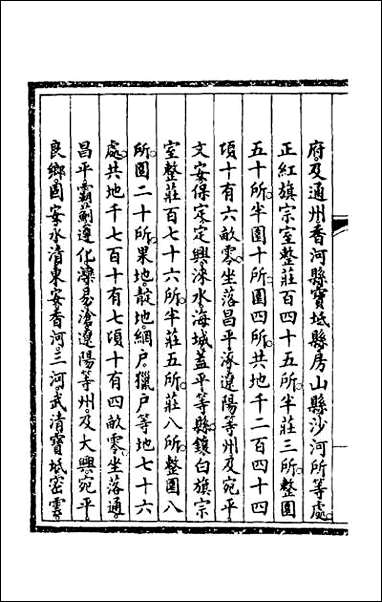 府及通州香河縣寶坻縣房山縣沙河所等處
正紅旗宗室整莊百四十五所半莊三所整園
五十所半園十所園四所共地千二百四十四
頃十有六畝零坐落昌平涿遼陽等州及宛平
文安保定定興淶水海城蓋平等縣鑲白旗宗
室整莊百七十六所半莊五所莊八所整園八
所園二十所果地靛地網户獵户等地七十六
處共地千七百十有七頃十有四畝零坐落通
昌平霸薊遵化灤易滄遼陽等州及大興宛平
良鄉固安永清東安香河三河武清寶坻密雲